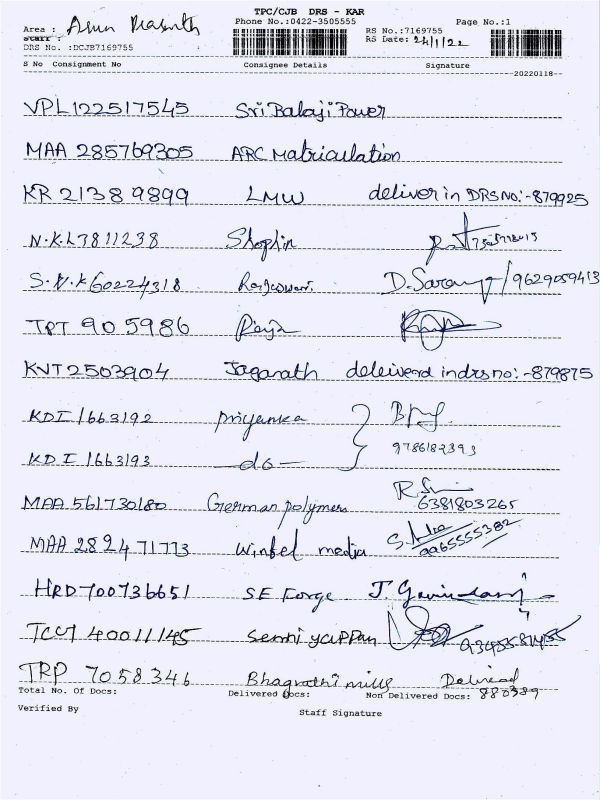 TPC/CJB DRS - KAR
Area : Arun Prasanth Phone No.:0422-3505555 RS No.:7169755 Page No.:1
Staff : RS Date: 24/1/22
DRS No. :DCJB7169755
S No Consignment No Consignee Details Signature
20220118
VPL122517545 Sri Balaji Power
MAA 285769305 ARC Matriculation
KR 21389899 LMW deliver in DRS NO:-879925
N.K.L7811238 Shoplin
S.N.K60224318 Rajeswari D. Sarang / 9629059413
TPT 905986 Raja
KVT2503904 Jaganath deleiverd indrsno:-879875
KDI 1663192 priyanka
9786182393
KDI 1663193 -do-
MAA 561730180 German polymers
6381803265
MAA 282471773 winfel media 9965555382
HRD700736651 SE Forge
TCU 40011145
TRP 7058346 Bhagrathi mills Deliread
Total No. Of Docs: Delivered Docs: Non Delivered Docs: 880389
Verified By Staff Signature